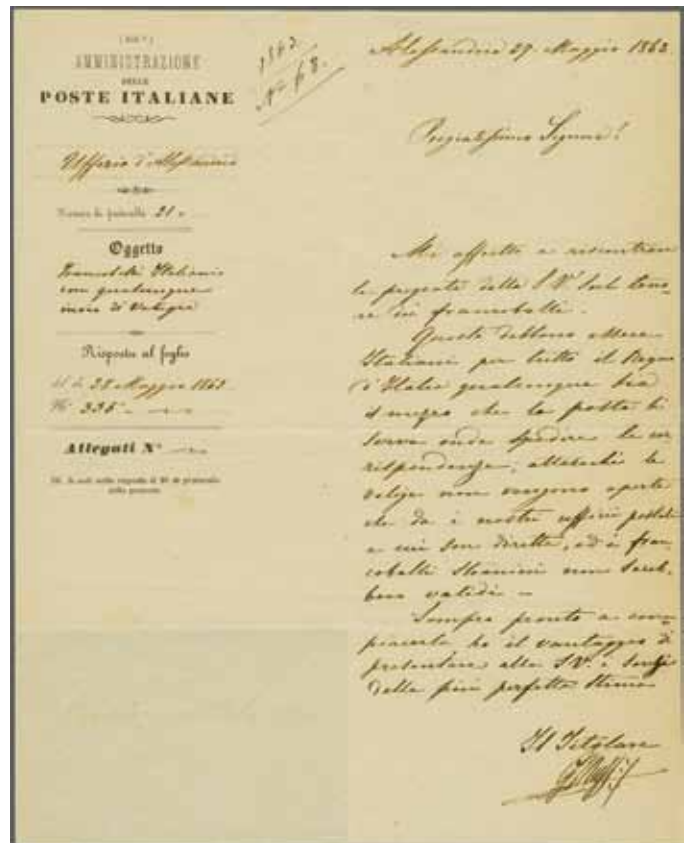 AMMINISTRAZIONE
DELLE
POSTE ITALIANE
Ufficio d'Alessandria
Numero di protocollo 21
Oggetto
Francobolli Italiani
con qualunque
mezzo di Valigia
Risposta al foglio
del dì 28 Maggio 1863
N° 335
Allegati N°
1863
N° 68.
Alessandria 29 Maggio 1863
Pregiatissimo Signore!
Mi affretto a riscontrare
la pregiata della S.V. sul teno-
re dei francobolli.
Questi debbono essere
Italiani per tutto il Regno
d'Italia qualunque sia
il mezzo che la posta si
serva onde spedire le cor
rispondenze, attesochè le
valigie non vengono aperte
che da i nostri uffici postali
a cui son dirette, ed i fran-
cobolli stranieri non sareb-
bero validi —
Sempre pronto a com-
piacerla ho il vantaggio di
presentare alla S.V. i sensi
della più perfetta stima
Il Titolare